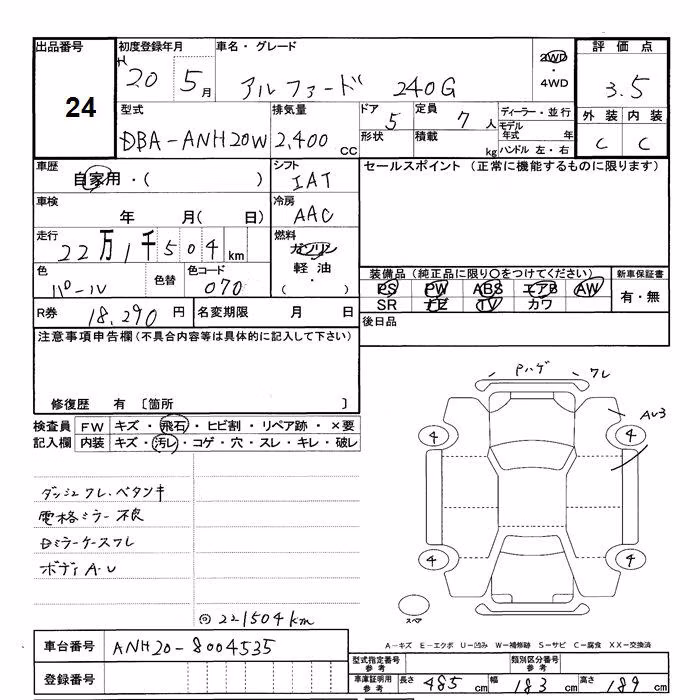 出品番号 24
初度登録年月 H 20 5月
車名・グレード アルファード 240G
2WD・4WD
評価点 3.5
型式 DBA-ANH20W
排気量 2,400 CC
ドア 5
形状
定員 7人
積載 kg
ディーラー・並行
モデル年式 年
ハンドル 左・右
外装 C
内装 C
車歴 自家用・( )
シフト IAT
セールスポイント (正常に機能するものに限ります)
車検 年 月( 日)
冷房 AAC
走行 22万1千504km
燃料 ガソリン
軽油・( )
色 パール
色替
色コード 070
装備品 (純正品に限り○をつけてください)
新車保証書
PS PW ABS エアB AW
SR ナビ TV カワ
有・無
R券 18,290円
名変期限 月 日
後日品
注意事項申告欄 (不具合内容等は具体的に記入して下さい)
修復歴 有 〔箇所 〕
検査員記入欄
FW キズ・飛石・ヒビ割・リペア跡・×要
内装 キズ・汚レ・コゲ・穴・スレ・キレ・破レ
Pハゲ ワレ
AU3
4 4
4 4
ダッシュワレ・ベタツキ
電格ミラー不良
Dミラーケースワレ
ボディA・U
◎221504km
スペア
車台番号 ANH20-8004535
登録番号
A―キズ E―エクボ U―凹み W―補修跡 S―サビ C―腐食 XX―交換済
型式指定番号 参考
類別区分番号 参考
車庫証明用 参考 長さ 485cm 幅 183cm 高さ 189cm